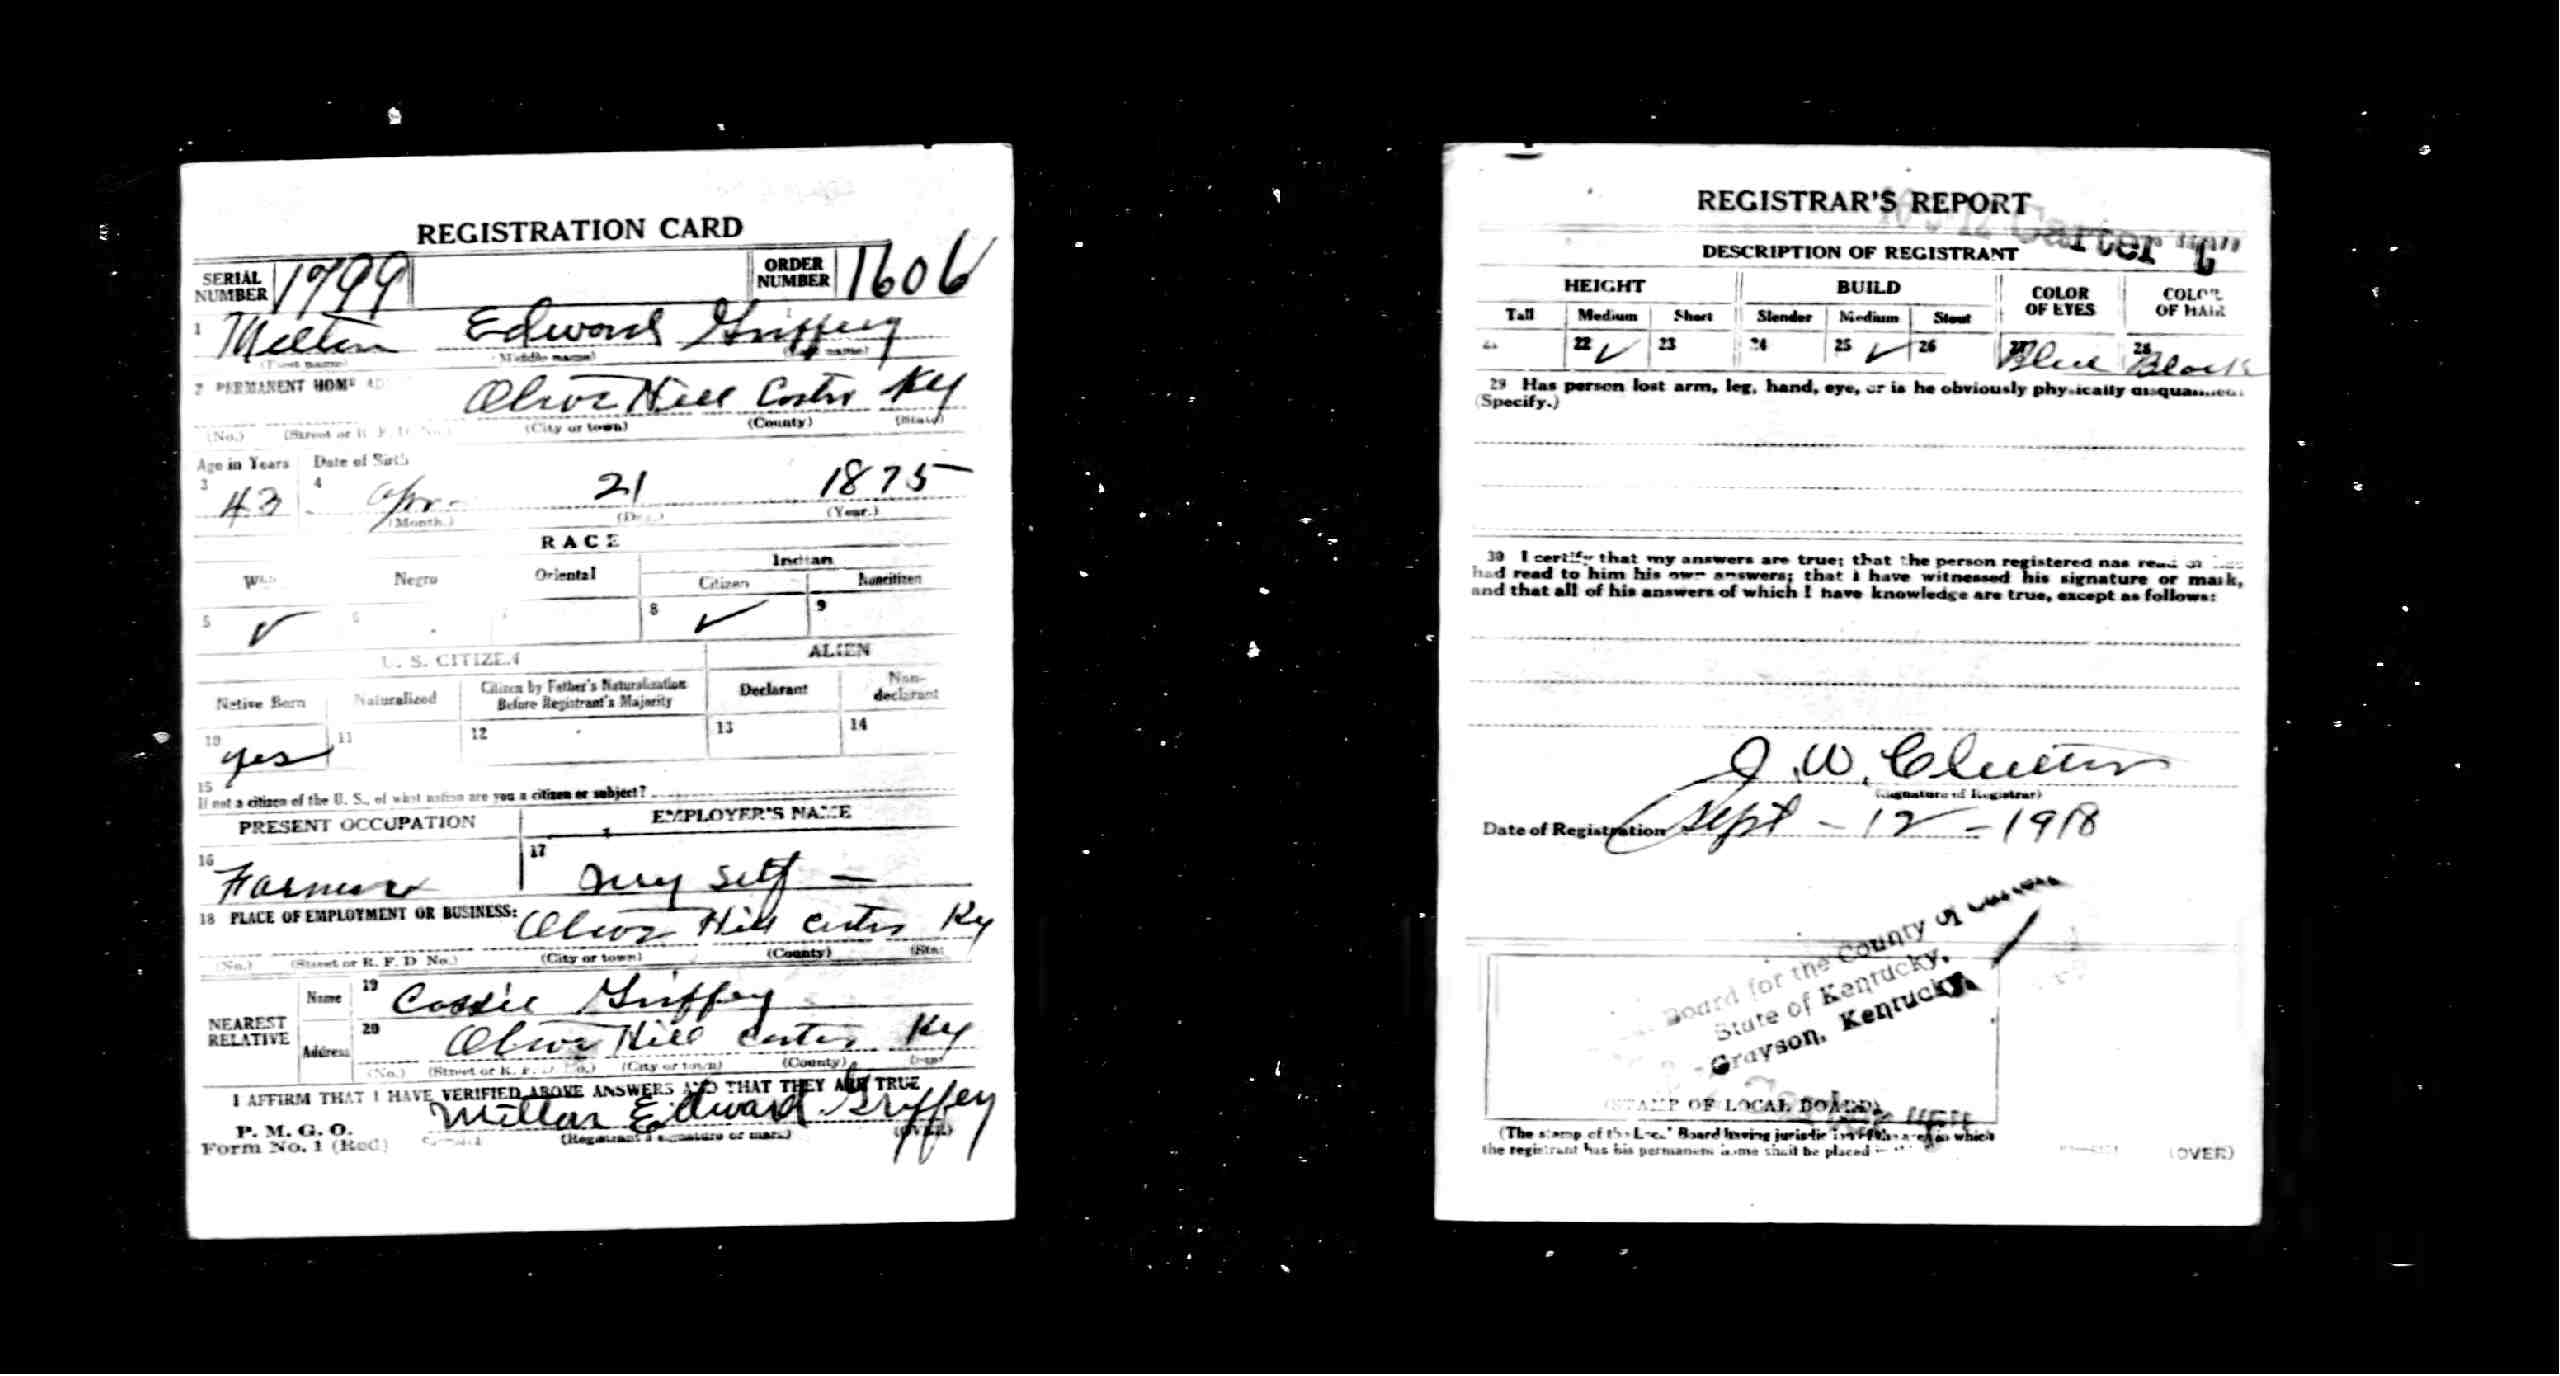 REGISTRATION CARD
SERIAL NUMBER 1799 ORDER NUMBER 1606
1 Milton Edward Griffey
(First name) (Middle name) (Last name)
2 PERMANENT HOME AD
Olive Hill Carter Ky
(No.) (Street or R. F. D. No.) (City or town) (County) (State)
Age in Years Date of Birth
3 43 4 Apr. 21 1875
(Month.) (Day.) (Year.)
RACE
Negro Oriental Indian
Citizen Noncitizen
5 ✓ 6 7 8 ✓ 9
U. S. CITIZEN ALIEN
Native Born Naturalized Citizen by Father's Naturalization Before Registrant's Majority Declarant Non-declarant
10 yes 11 12 13 14
15
If not a citizen of the U. S., of what nation are you a citizen or subject?
PRESENT OCCUPATION EMPLOYER'S NAME
16 Farmer 17 my self —
18 PLACE OF EMPLOYMENT OR BUSINESS:
Olive Hill Carter Ky
(No.) (Street or R. F. D No.) (City or town) (County) (State)
NEAREST RELATIVE Name 19 Cassie Griffey
Address 20 Olive Hill Carter Ky
(No.) (Street or R. F. D. No.) (City or town) (County) (State)
I AFFIRM THAT I HAVE VERIFIED ABOVE ANSWERS AND THAT THEY ARE TRUE
P. M. G. O.
Form No. 1 (Red) Milton Edward Griffey
(Registrant's signature or mark) (OVER)
REGISTRAR'S REPORT
Carter "C"
DESCRIPTION OF REGISTRANT
HEIGHT BUILD COLOR OF EYES COLOR OF HAIR
Tall Medium Short Slender Medium Stout
21 22 ✓ 23 24 25 ✓ 26 27 Blue 28 Black
29 Has person lost arm, leg, hand, eye, or is he obviously physically disqualified?
(Specify.)
30 I certify that my answers are true; that the person registered has read or has
had read to him his own answers; that I have witnessed his signature or mark,
and that all of his answers of which I have knowledge are true, except as follows:
J. W.
(Signature of Registrar)
Date of Registration Sept - 12 - 1918
Board for the County of Carter
State of Kentucky,
Grayson, Kentucky
(STAMP OF LOCAL BOARD)
(The stamp of the Local Board having jurisdiction of the area in which
the registrant has his permanent home shall be placed in this
(OVER)